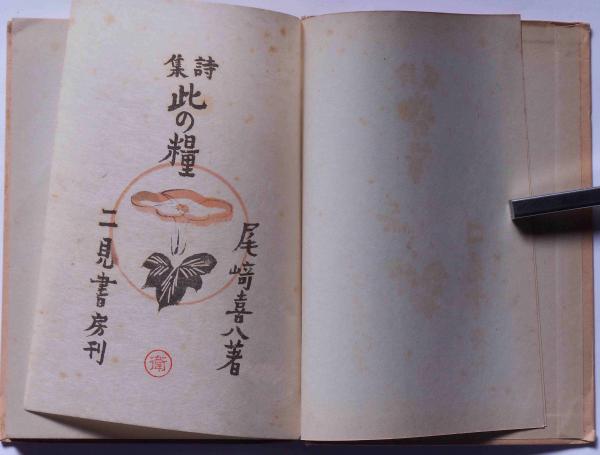 詩集
此の糧
尾﨑喜八著
二見書房刊
衛